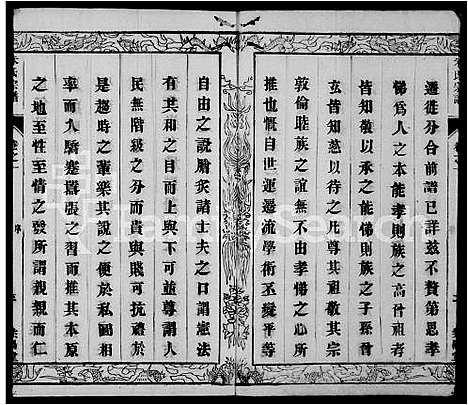 遷徙分合前譜已詳茲不贅第思孝
悌爲人之本能孝則族之高曾祖考
皆知敬以承之能悌則族之子孫曾
玄皆知慈以待之凡尊其祖敬其宗
敦倫睦族之誼無不由孝悌之心以
推也慨自世運遷流學術丕變平等
自由之說騰諸士夫之口謂憲法
有共和之目而上與下可並尊謂人
民無階級之分而貴與賤可抗禮於
是趨時之輩樂其說之便於私圖相
率而入驕蹇囂張之習而推其本原
之地至性至情之發所謂親親而仁
朱氏宗譜
卷之一
序